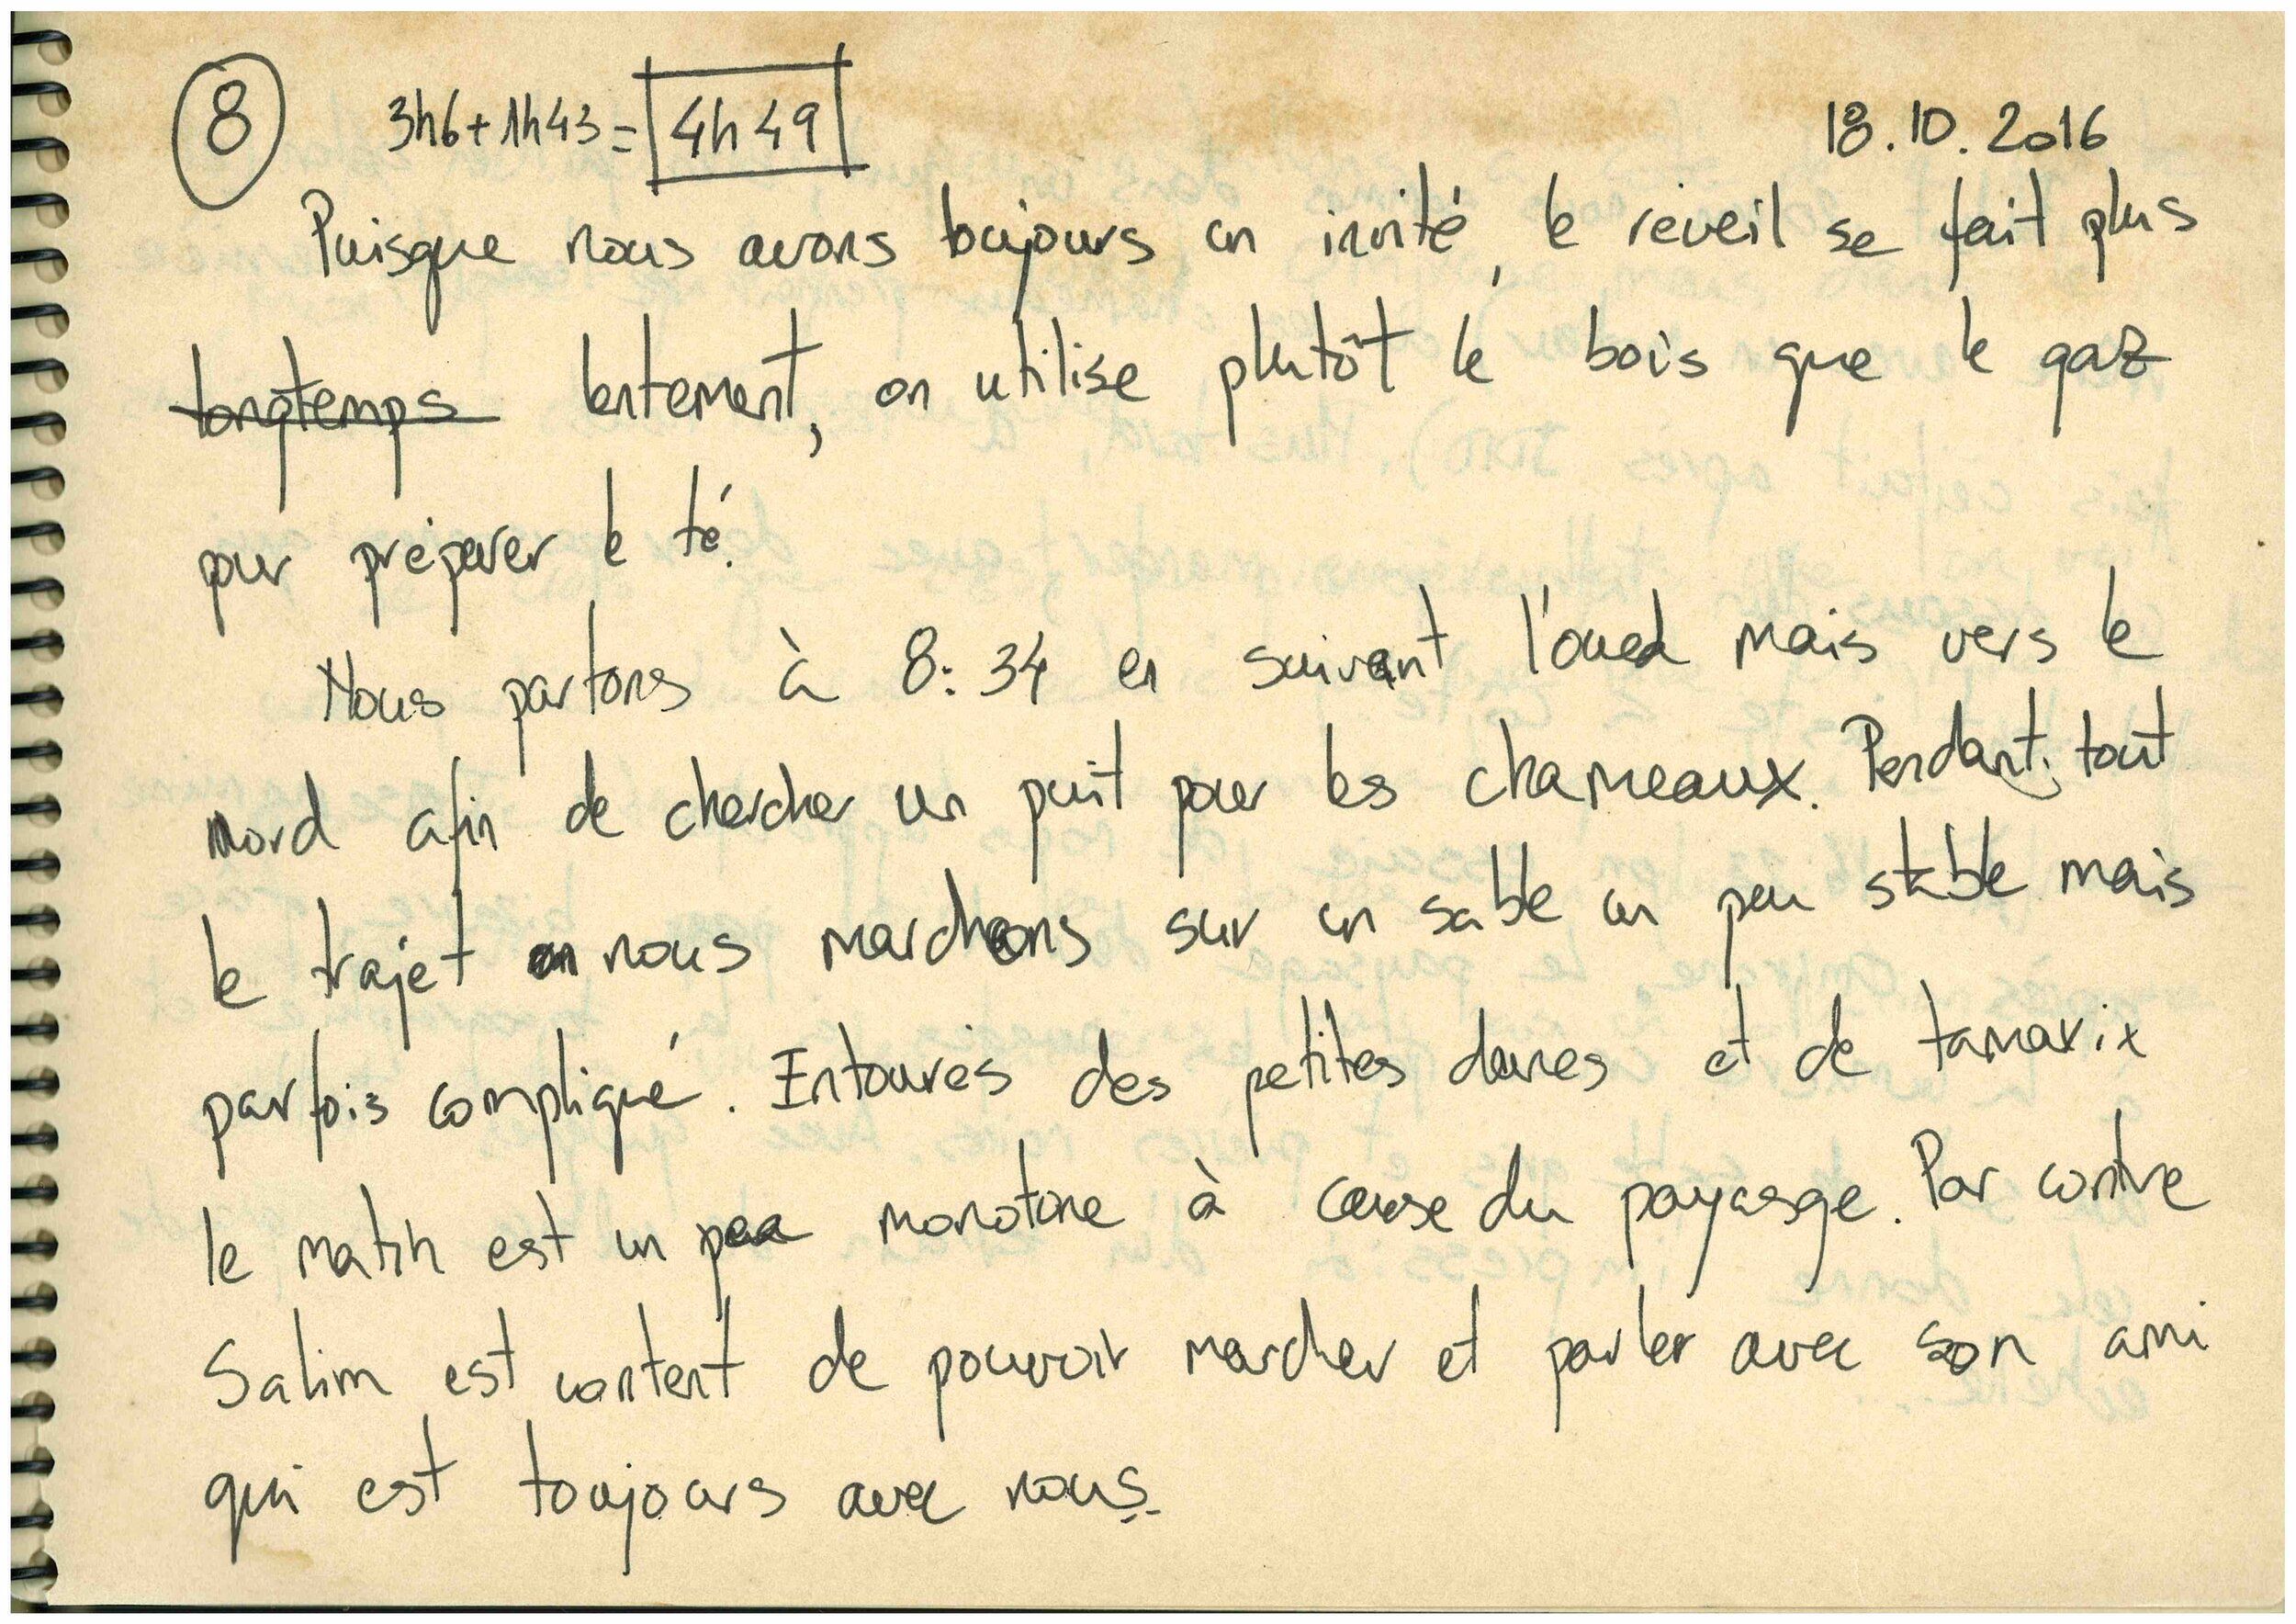 8 3h6+1h43= 4h49 18.10.2016
Puisque nous avons toujours un invité, le réveil se fait plus
longtemps lentement, on utilise plutôt le bois que le gaz
pour préparer le té.
Nous partons à 8:34 en suivant l'oued mais vers le
nord afin de chercher un puit pour les chameaux. Pendant tout
le trajet on nous marchons sur un sable un peu stable mais
parfois compliqué. Entourés des petites dunes et de tamarix
le matin est un peu monotone à cause du payasge. Par contre
Salim est content de pouvoir marcher et parler avec son ami
qui est toujours avec nous.